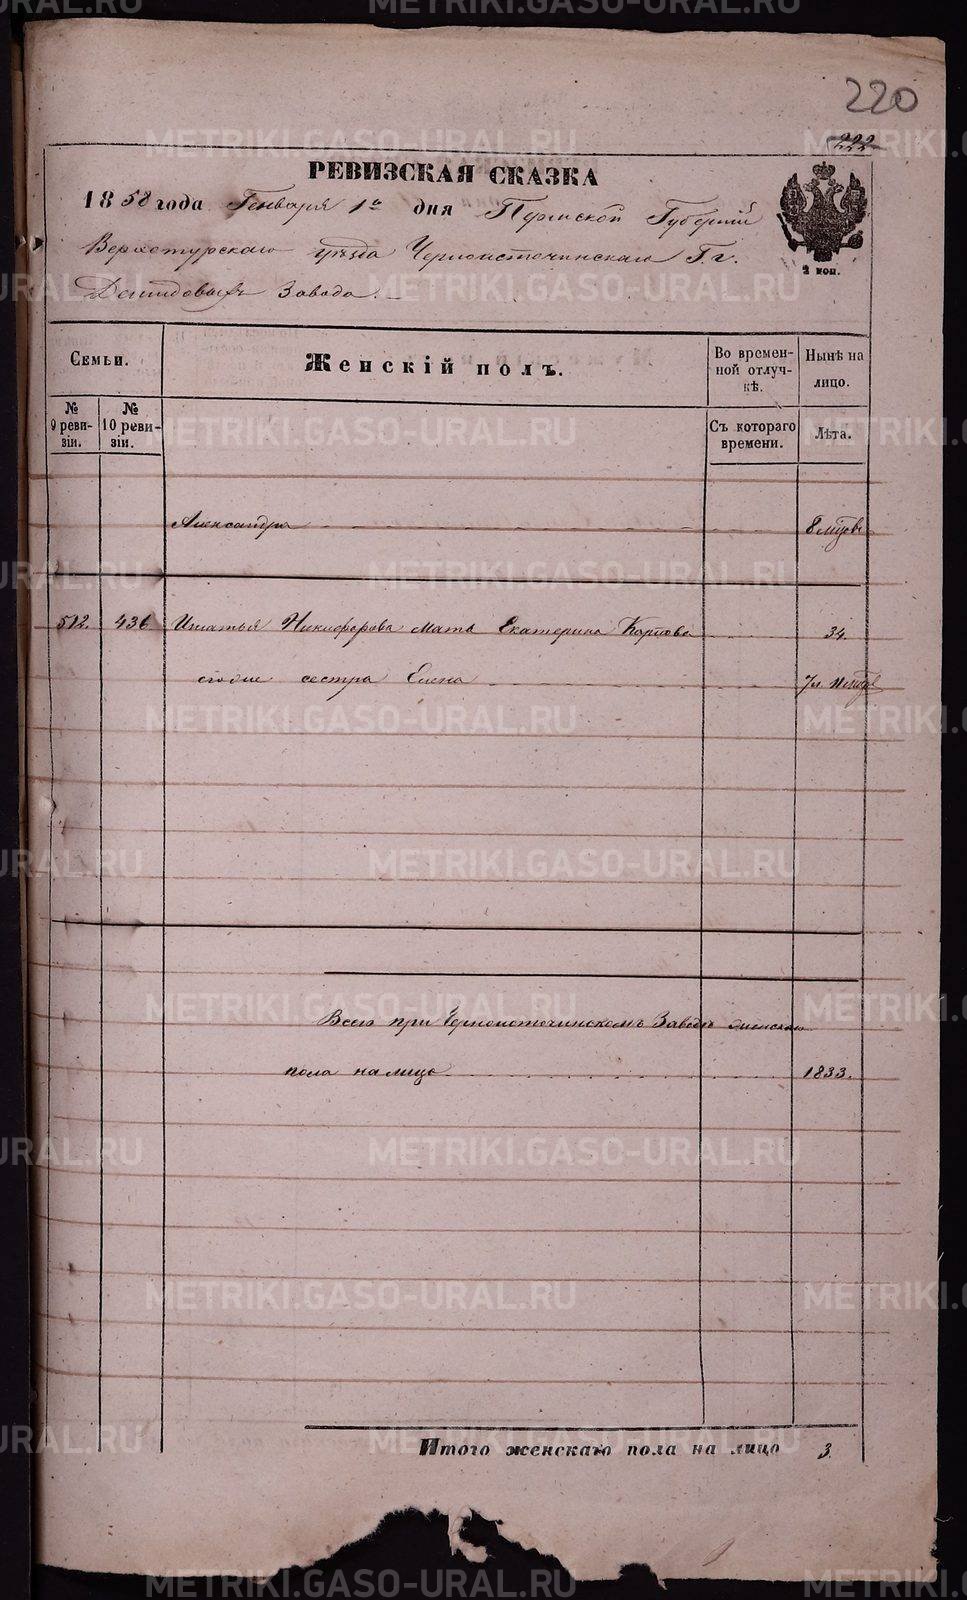 220
222
РЕВИЗСКАЯ СКАЗКА
1858 года Генваря 1го дня Пермской Губернiи
Верхотурскаго уѣзда Черноисточинскаго Гг.
Демидовыхъ Завода.
2 коп.
Семьи.
Женскiй полъ.
Во времен-
ной отлуч-
кѣ.
Нынѣ на
лицо.
№
9 реви-
зiи.
№
10 реви-
зiи.
Съ котораго
времени.
Лѣта.
Александра 8 мцовъ
512. 436 Игнатья Никифорова мать Екатерина Карпова 34.
его же сестра Елена 7 л.
Всего при Черноисточинскомъ Заводѣ женскаго
пола на лицо 1833.
Итого женскаго пола на лицо 3.
METRIKI.GASO-URAL.RU